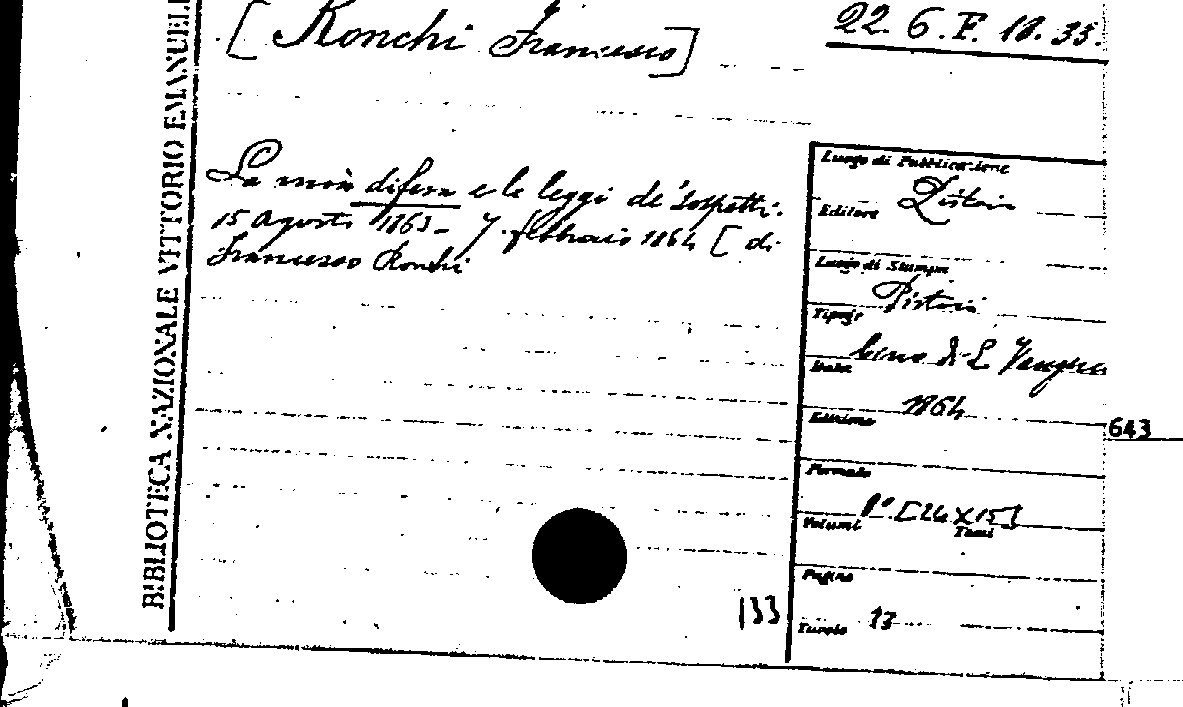 BIBLIOTECA NAZIONALE VITTORIO EMANUELE
[ Ronchi Francesco]
22. 6. F. 18. 35.
La mia difesa e le leggi de' sospetti.
15 agosto 1863 - 7 febbraio 1864 [ di
Francesco Ronchi
Luogo di Pubblicazione
Pistoia
Editore
Luogo di Stampa
Pistoia
Tipogr
Data
1864
Edizione
643
Formato
8° [24 X 15]
Volumi
Tomi
Pagine
13
Tavole
133